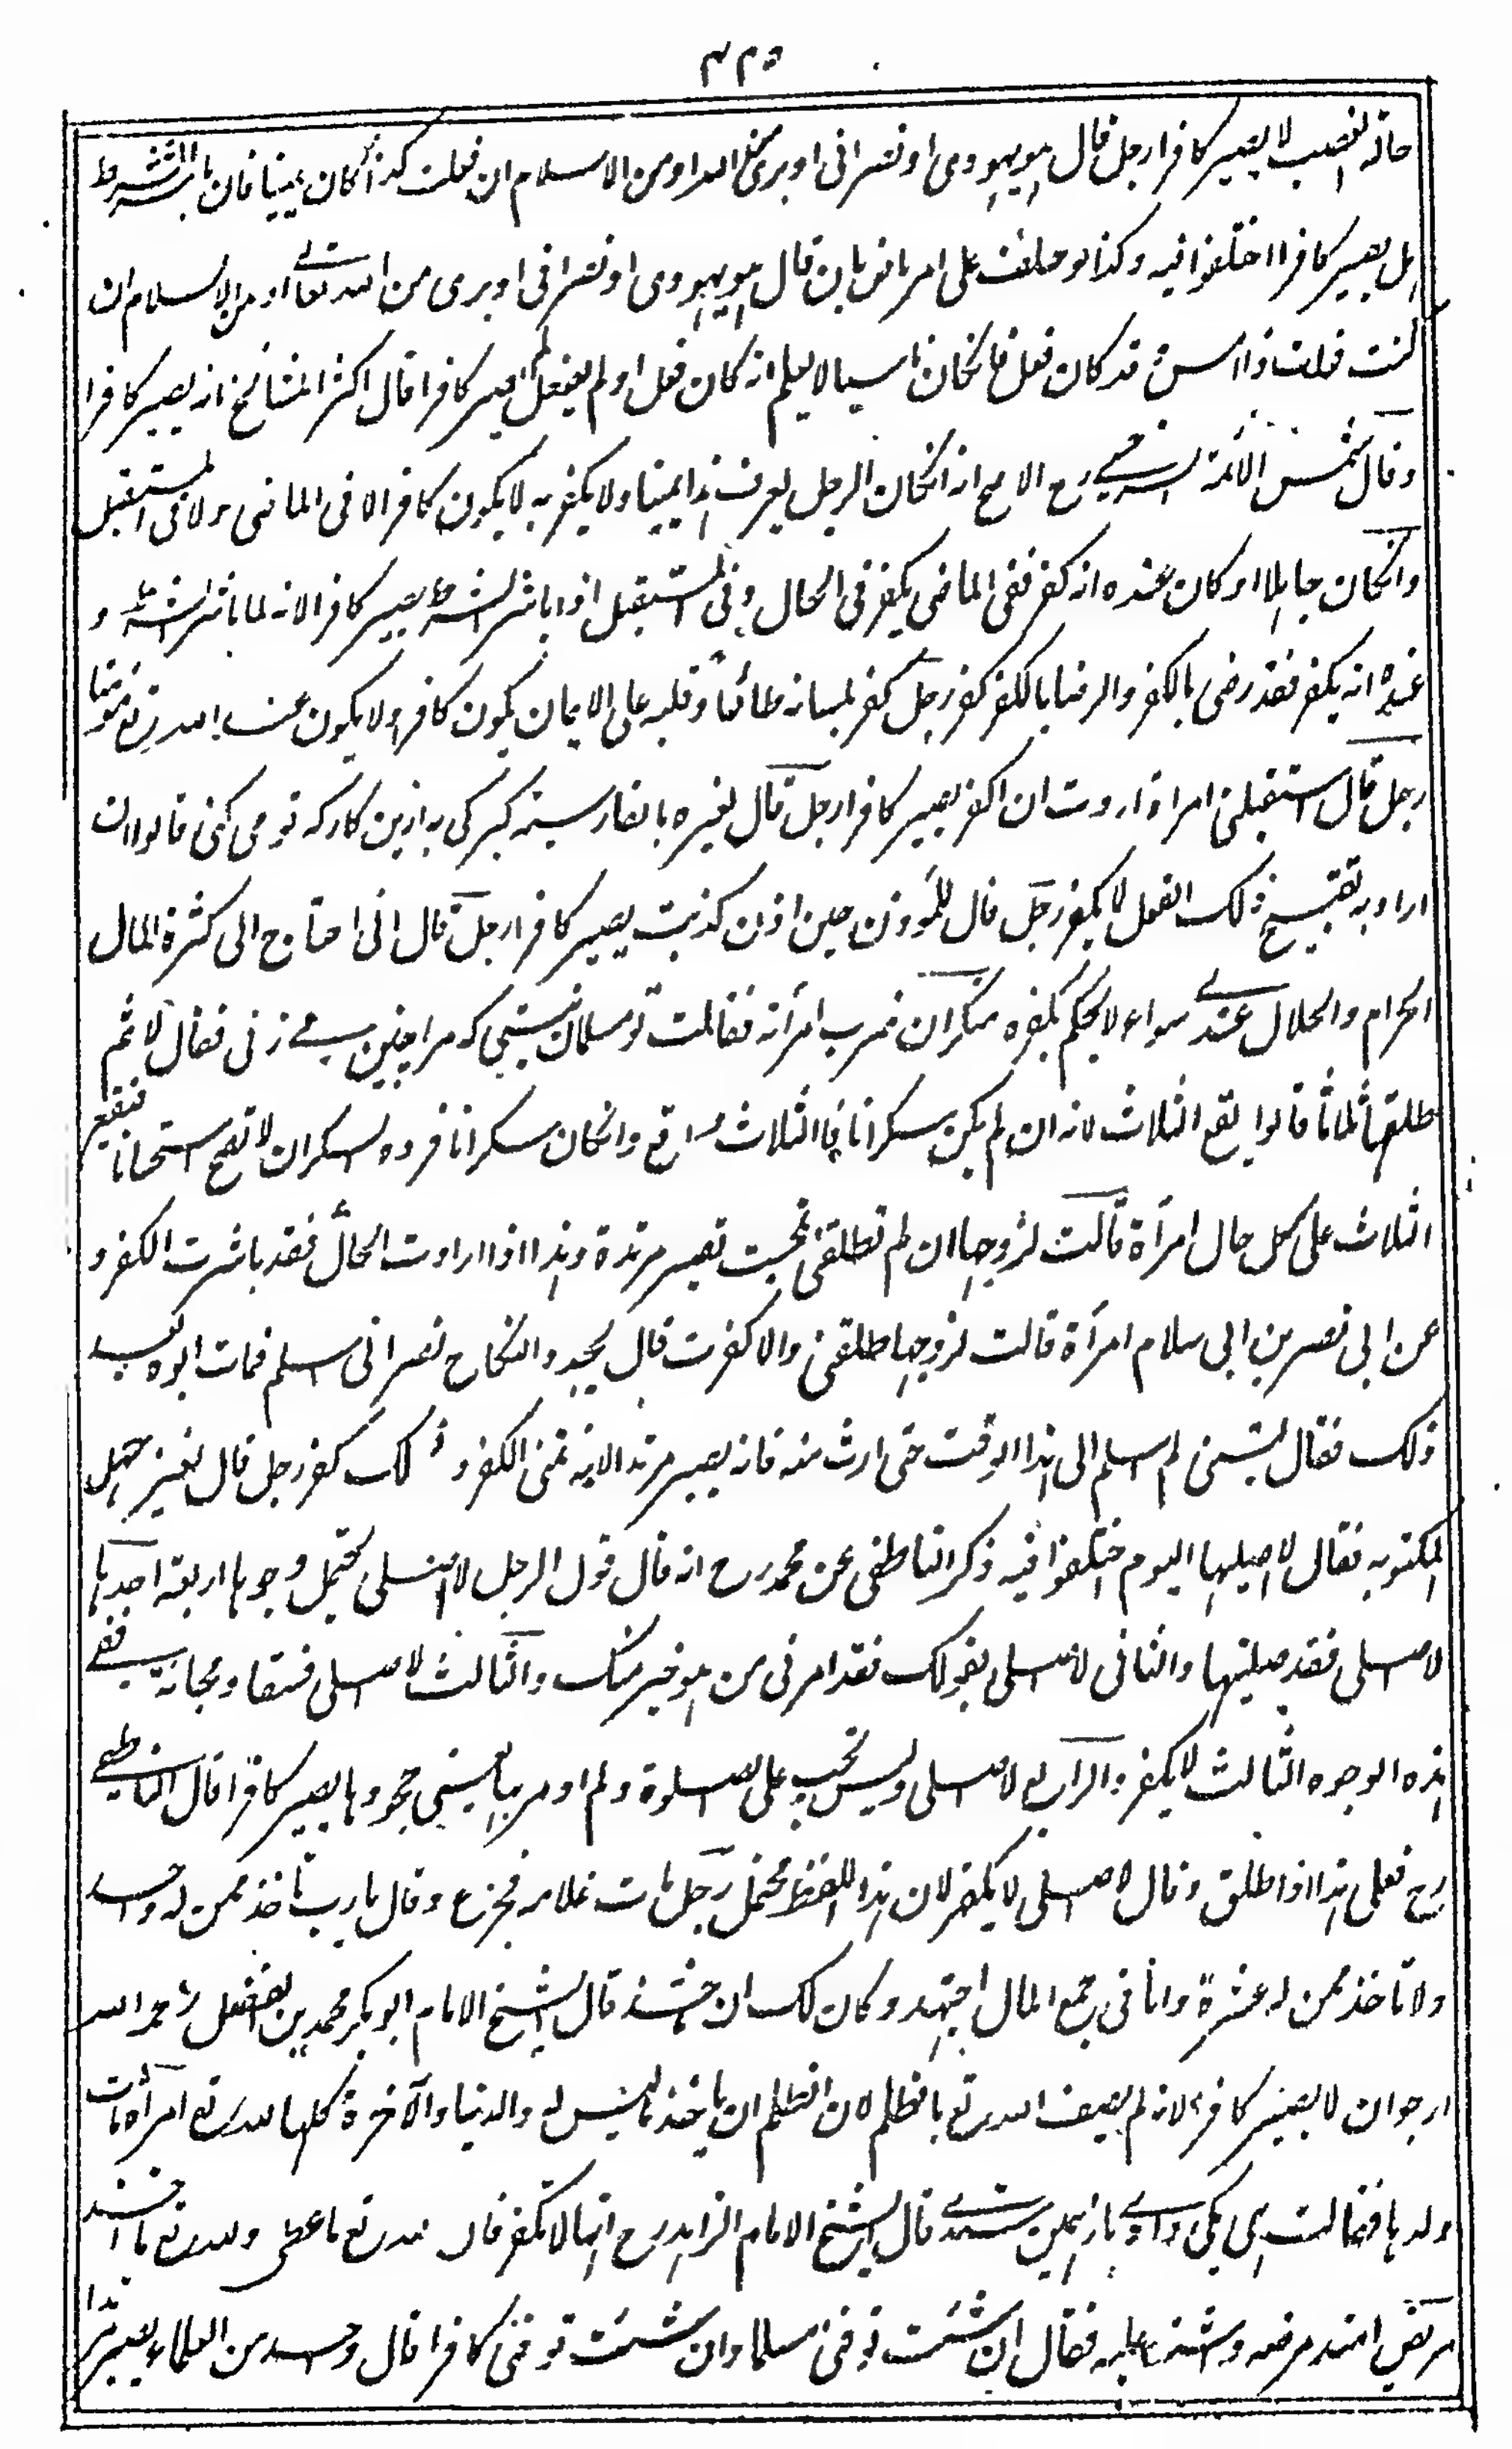 ٣٢٥
حالة الغضب لا يصير كافرا رجل قال هو يهودى او نصرانى او برئ من الله او من الاسلام ان فعلت كذا كان يمينا فان باشر الشرط
هل يصير كافرا اختلفوا فيه وكذا لو حلف على امر ماض بان قال هو يهودى او نصرانى او برى من الله تعالى او من الاسلام ان
كنت فعلت ذا امس وقد كان فعل فانكان ناسيا لا يعلم انه كان فعل او لم يفعل لم يصر كافرا قال اكثر المشائخ انه يصير كافرا
وقال شمس الائمة السرخسى رح الاصح انه انكان الرجل يعرف هذا يمينا ولا يكفر به لا يكون كافرا لا فى الماضى ولا فى المستقبل
وانكان جاهلا او كان عنده انه كفر ففى الماضى يكفر فى الحال وفى المستقبل اذا باشر الشرط يصير كافرا لانه لما باشر الشرط و
عنده انه يكفر فقد رضى بالكفر والرضا بالكفر كفر رجل كفر بلسانه طائعا وقلبه على الايمان يكون كافرا ولا يكون عند الله تع مومنا
رجل قال استقبلنى امر اذا اردت ان اكفر يصير كافرا رجل قال لغيره بالفارسية كبركى به ازين كار كه تو مى كنى قالوا ان
اراد به تقبيح ذلك الفعل لا يكفر رجل قال للمؤذن حين اذن كذبت يصير كافرا رجل قال انى احتاج الى كثرة المال
الحرام والحلال عندى سواء لا يحكم بكفره سكران ضرب امرأته فقالت تو مسلمان نيستى كه مرا چنين مى زنى فقال لا ثم
طلقها ثلاثا قالوا يقع الثلاث لانه ان لم يكن سكرانا فالثلاث واقع وانكان سكرانا فردة السكران لا تصح استحسانا فيقع
الثلاث على كل حال امرأة قالت لزوجها ان لم تطلقنى تصير مرتدة وهذا اذا ارادت الحال فقد باشرت الكفر و
عن ابى نصر بن ابى سلام امرأة قالت لزوجها طلقنى والا كفرت قال يجدد النكاح نصرانى اسلم فمات ابوه بعد
ذلك فقال ليتنى لم اسلم الى هذا الوقت حتى ارث منه فانه يصير مرتدا لانه تمنى الكفر وذلك كفر رجل قال لغيره صل
المكتوبة فقال لا اصليها اليوم اختلفوا فيه ذكر الناطفى عن محمد رح انه قال قول الرجل لا اصلى يحتمل وجوها اربعة احدها
لا اصلى فقد صليتها والثانى لا اصلى بقولك فقد امرنى من هو خير منك والثالث لا اصلى فسقا ومجانة ففى
هذه الوجوه الثالث لا يكفر والرابع لا اصلى وليس تجب على الصلوة ولم اومر بها يعنى جحودها يصير كافرا قال الناطفى
رح فعلى هذا اذا اطلق وقال لا اصلى لا يكفر لان هذا اللفظ محتمل رجل مات غلامه فجزع وقال يا رب تأخذ ممن له واحد
ولا تأخذ ممن له عشرة وانا فى جمع المال اجتهد وكان لك ان قال الشيخ الامام ابو بكر محمد بن الفضل رحمه الله
ارجو ان لا يصير كافرا لانه لم يصف الله تع بالظلم لان الظلم ان ياخذ ما ليس له والدنيا والآخرة كلها لله تع امرأة مات
ولدها فقالت اى يكى دادى باز همين ستدى قال الشيخ الامام الزاهد رح انها لا تكفر فان لله تع ما اعطى ولله تع ما اخذ
مريض امتد مرضه واشتد عليه فقال ان شئت توفنى مسلما وان شئت توفنى كافرا قال واحد من العلماء يصير مرتدا